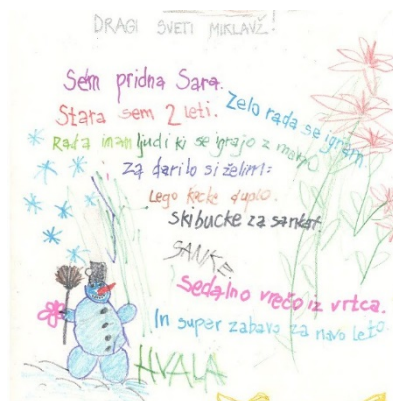 DRAGI SVETI MIKLAVŽ!
Sem pridna Sara.
Stara sem 2 leti. Zelo rada se igram.
Rada imam ljudi ki se igrajo z mano
Za darilo si želim:
Lego kocke duplo.
Ski bucke za sankat
SANKE.
Sedalno vrečo iz vrtca.
In super zabavo za novo leto.
HVALA